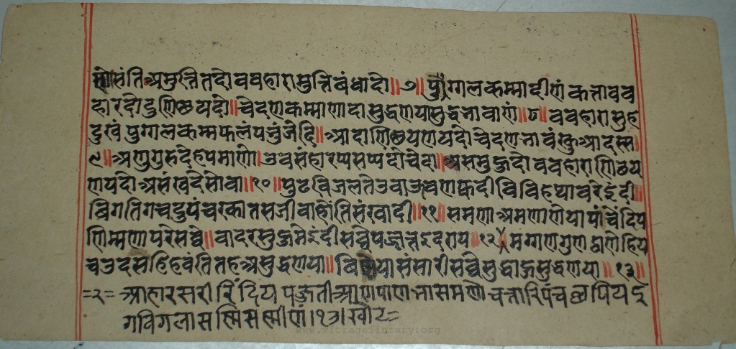 णो संति अमुत्ति तदो ववहारा मुत्ति बंधादो॥७॥ पुग्गलकम्मादीणं कत्ता वव
हारदो दु णिछयदो॥ चेदणकम्माणादा सुद्धणया सुद्धभावाणं॥८॥ ववहारा सुह
दुखं पुग्गलकम्मफलं पभुंजेदि॥ आदा णिछयणयदो चेदणभावं खु आदस्स
९॥ अणुगुरुदेहपमाणो। उवसंहारप्पसप्पदो चेदा॥ असमुहदो ववहारा णिछय
णयदो असंखदेसो वा॥१०॥ पुढविजलतेउवाऊवणफदी विविहथावरेइंदी॥
विगतिगचदुपंचरका तसजीवा होंति संखादी॥११॥ समणा अमणा णेया पंचेंदिय
णिम्मणा परे सव्वे॥ वादरसुहमेइंदी सव्वे पज्जत्त इदरा य॥१२॥ मग्गणगुणठाणेहिय
चउदसहि हवंति तह असुद्धणया॥ विण्णेया संसारी सव्वे सुद्धा हु सुद्धणया॥१३॥
=२= आहारसरीरिंदियपज्जत्ती आणपाणभासमणो चत्तारि पंच छप्पिय इ
गविगलासण्णिसण्णीणं।१३।